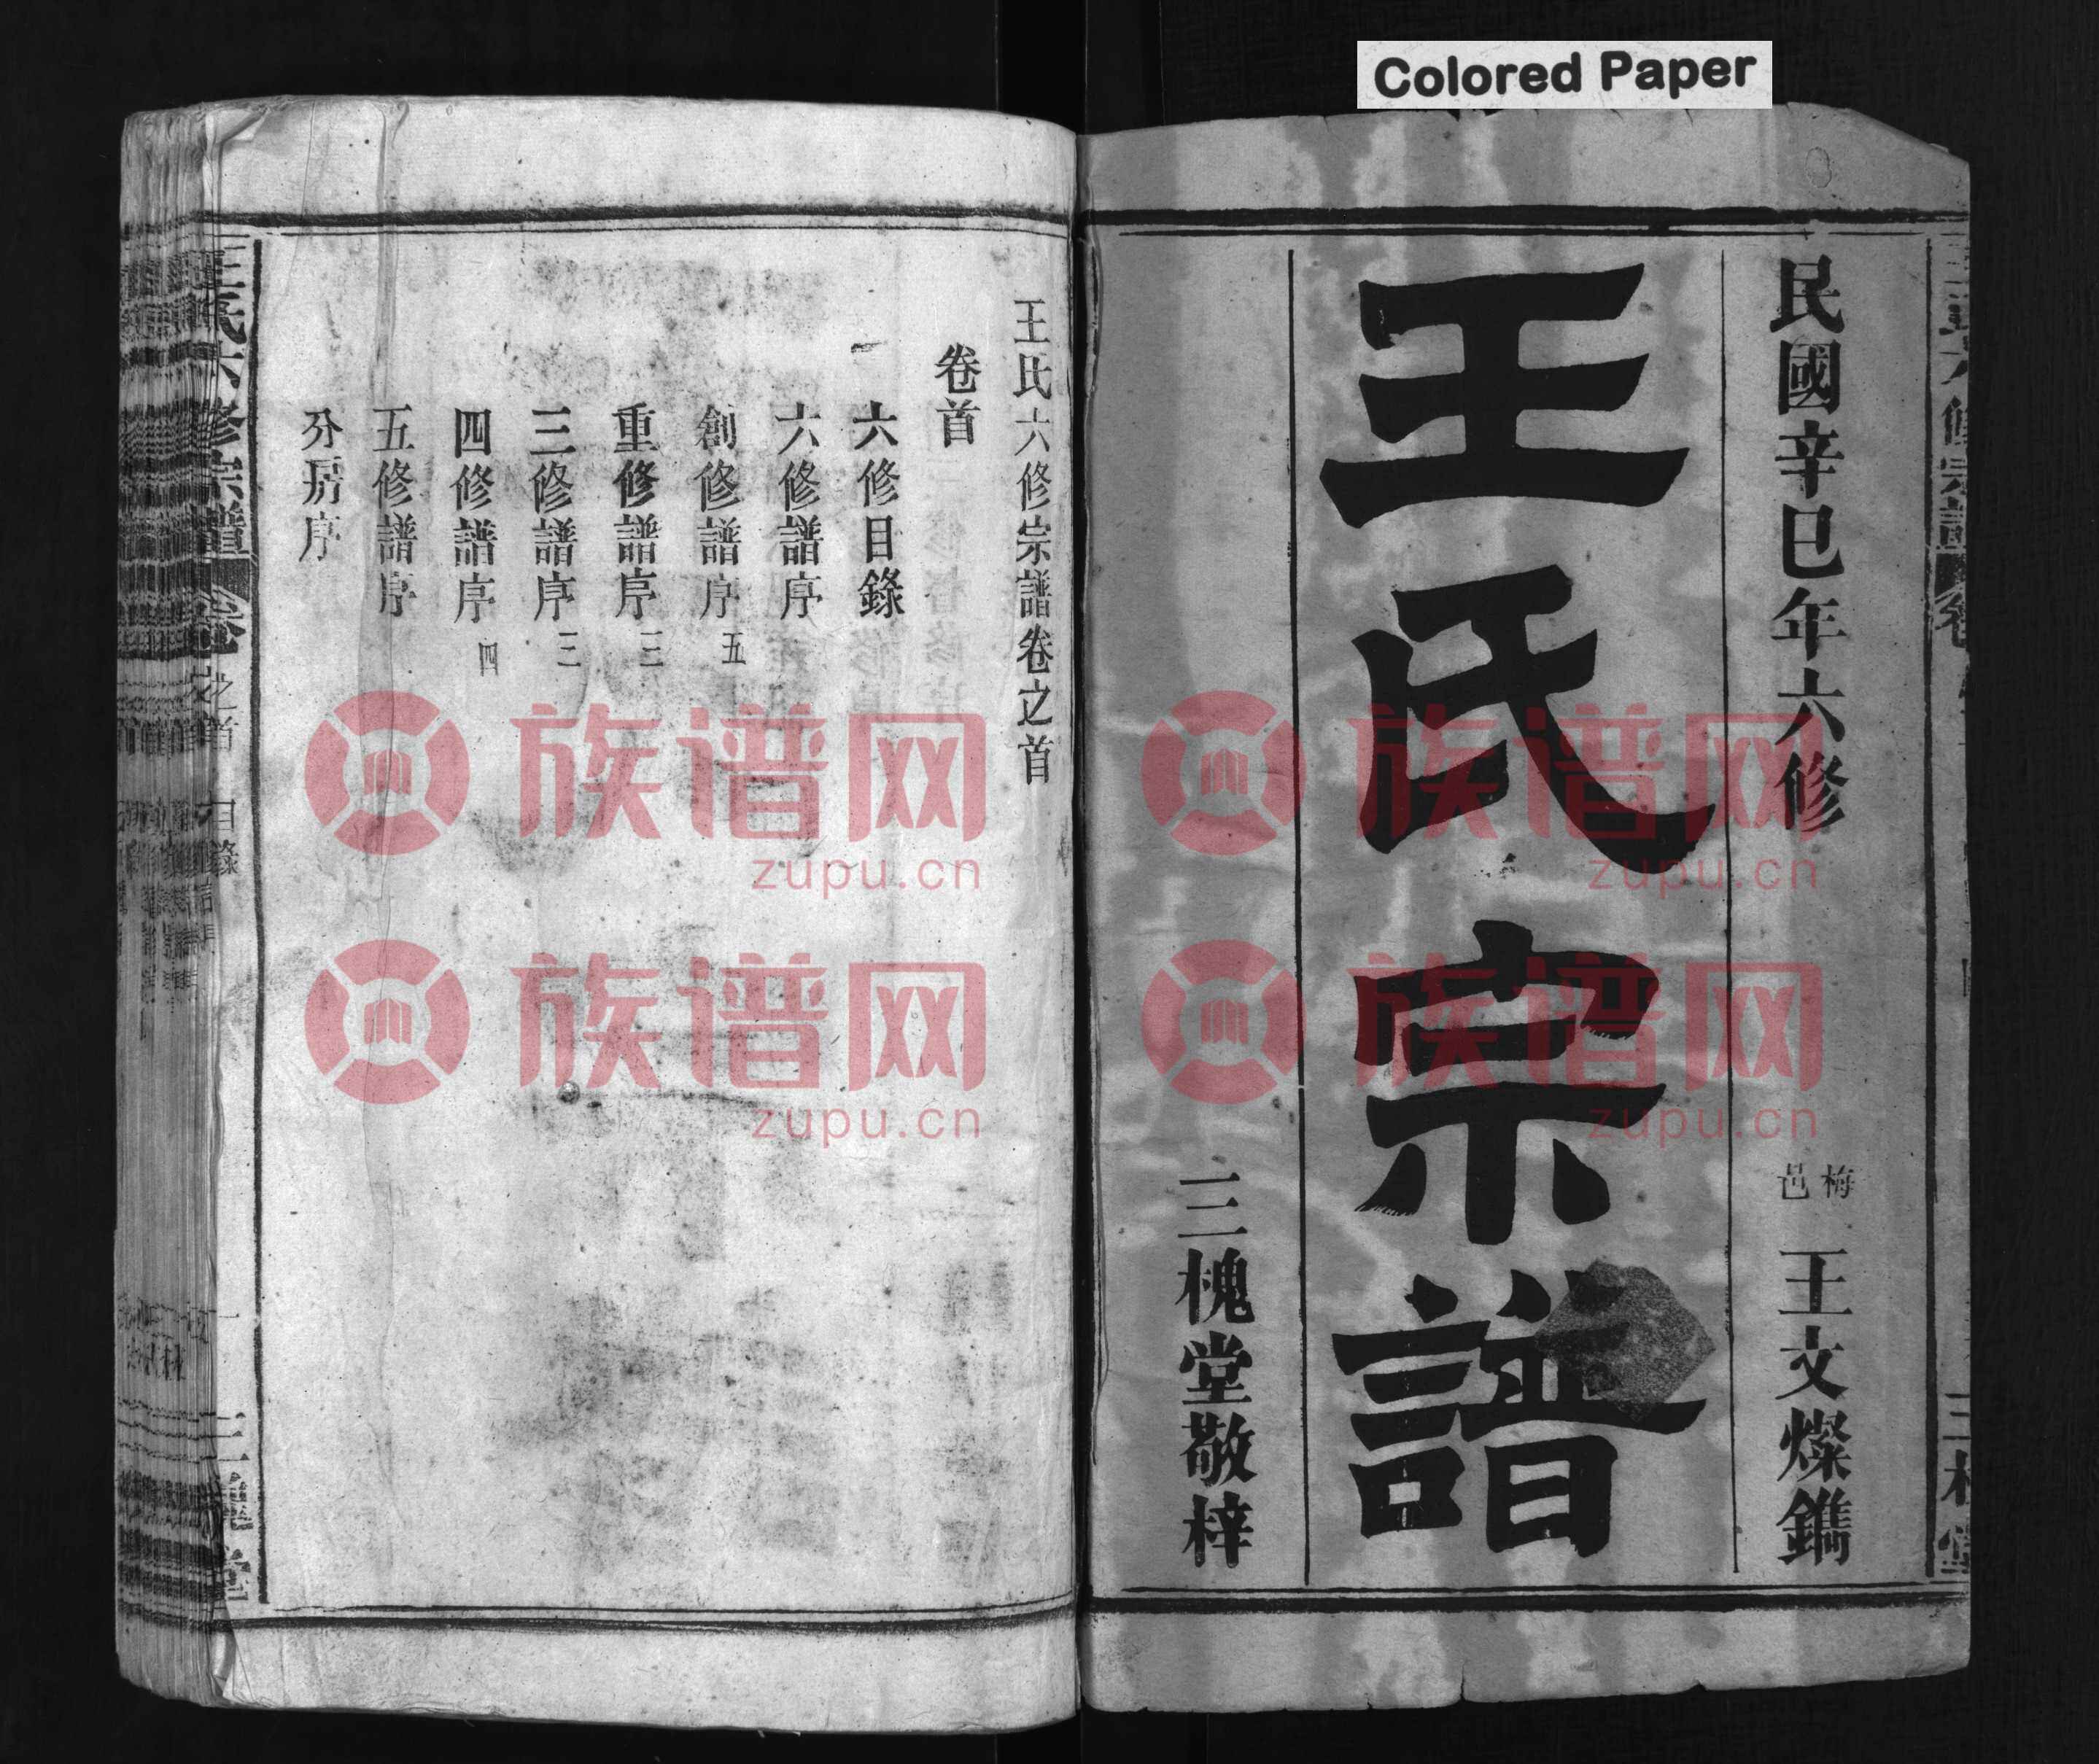 Colored Paper
民國辛巳年六修
梅邑
王文燦鐫
王氏宗譜
三槐堂敬梓
王氏六修宗譜卷之首
卷首
六修目錄
六修譜序
創修譜序 五
重修譜序 三
三修譜序 三
四修譜序 四
五修譜序
分房序
王氏六修宗譜
卷之首
目錄
一
三槐堂
族谱网
zupu.cn
族谱网
zupu.cn
族谱网
zupu.cn
族谱网
zupu.cn